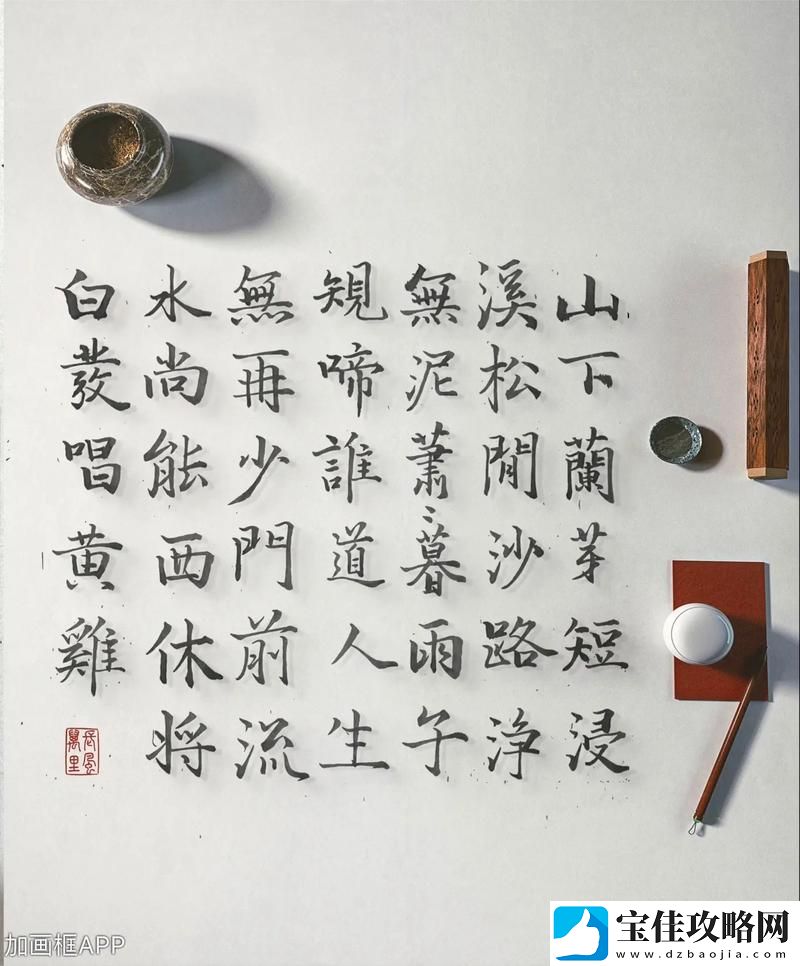 山下蘭芽短浸
溪松閒沙路淨
無泥蕭〻暮雨子
䂓啼誰道人生
無再少門前流
水尚能西休將
白發唱黄雞
長風萬里
加画框APP
宝佳攻略网
www.dzbaojia.com